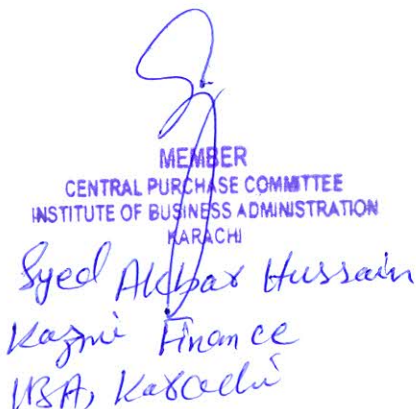 MEMBER
CENTRAL PURCHASE COMMITTEE
INSTITUTE OF BUSINESS ADMINISTRATION
KARACHI
Syed Akbar Hussain
Kazmi Finance
IBA, Karachi